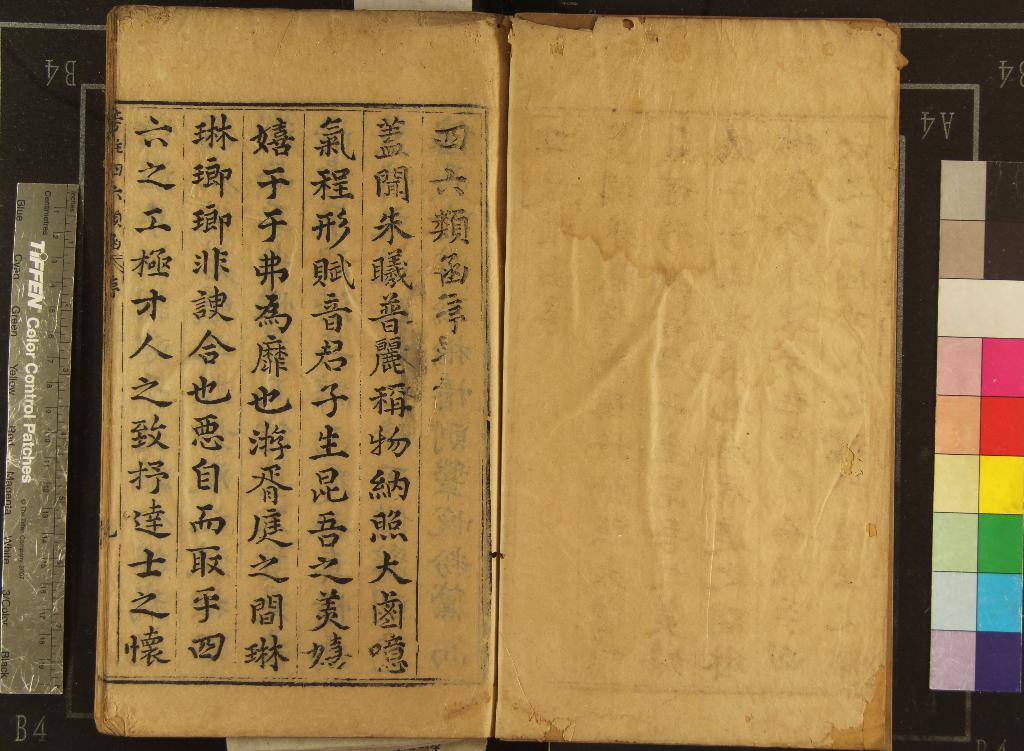 四六類函序
蓋聞朱曦普麗稱物納照大鹵噫
氣程形賦音君子生昆吾之美嬉
嬉于于弗為靡也游胥庭之間琳
琳瑯瑯非諛合也惡自而取乎四
六之工極才人之致抒達士之懷
四六類函 序
TIFFEN Color Control Patches
Centimetres
Blue
Cyan
Green
Yellow
Magenta
White
3/Color
Black
B4
B4
A4